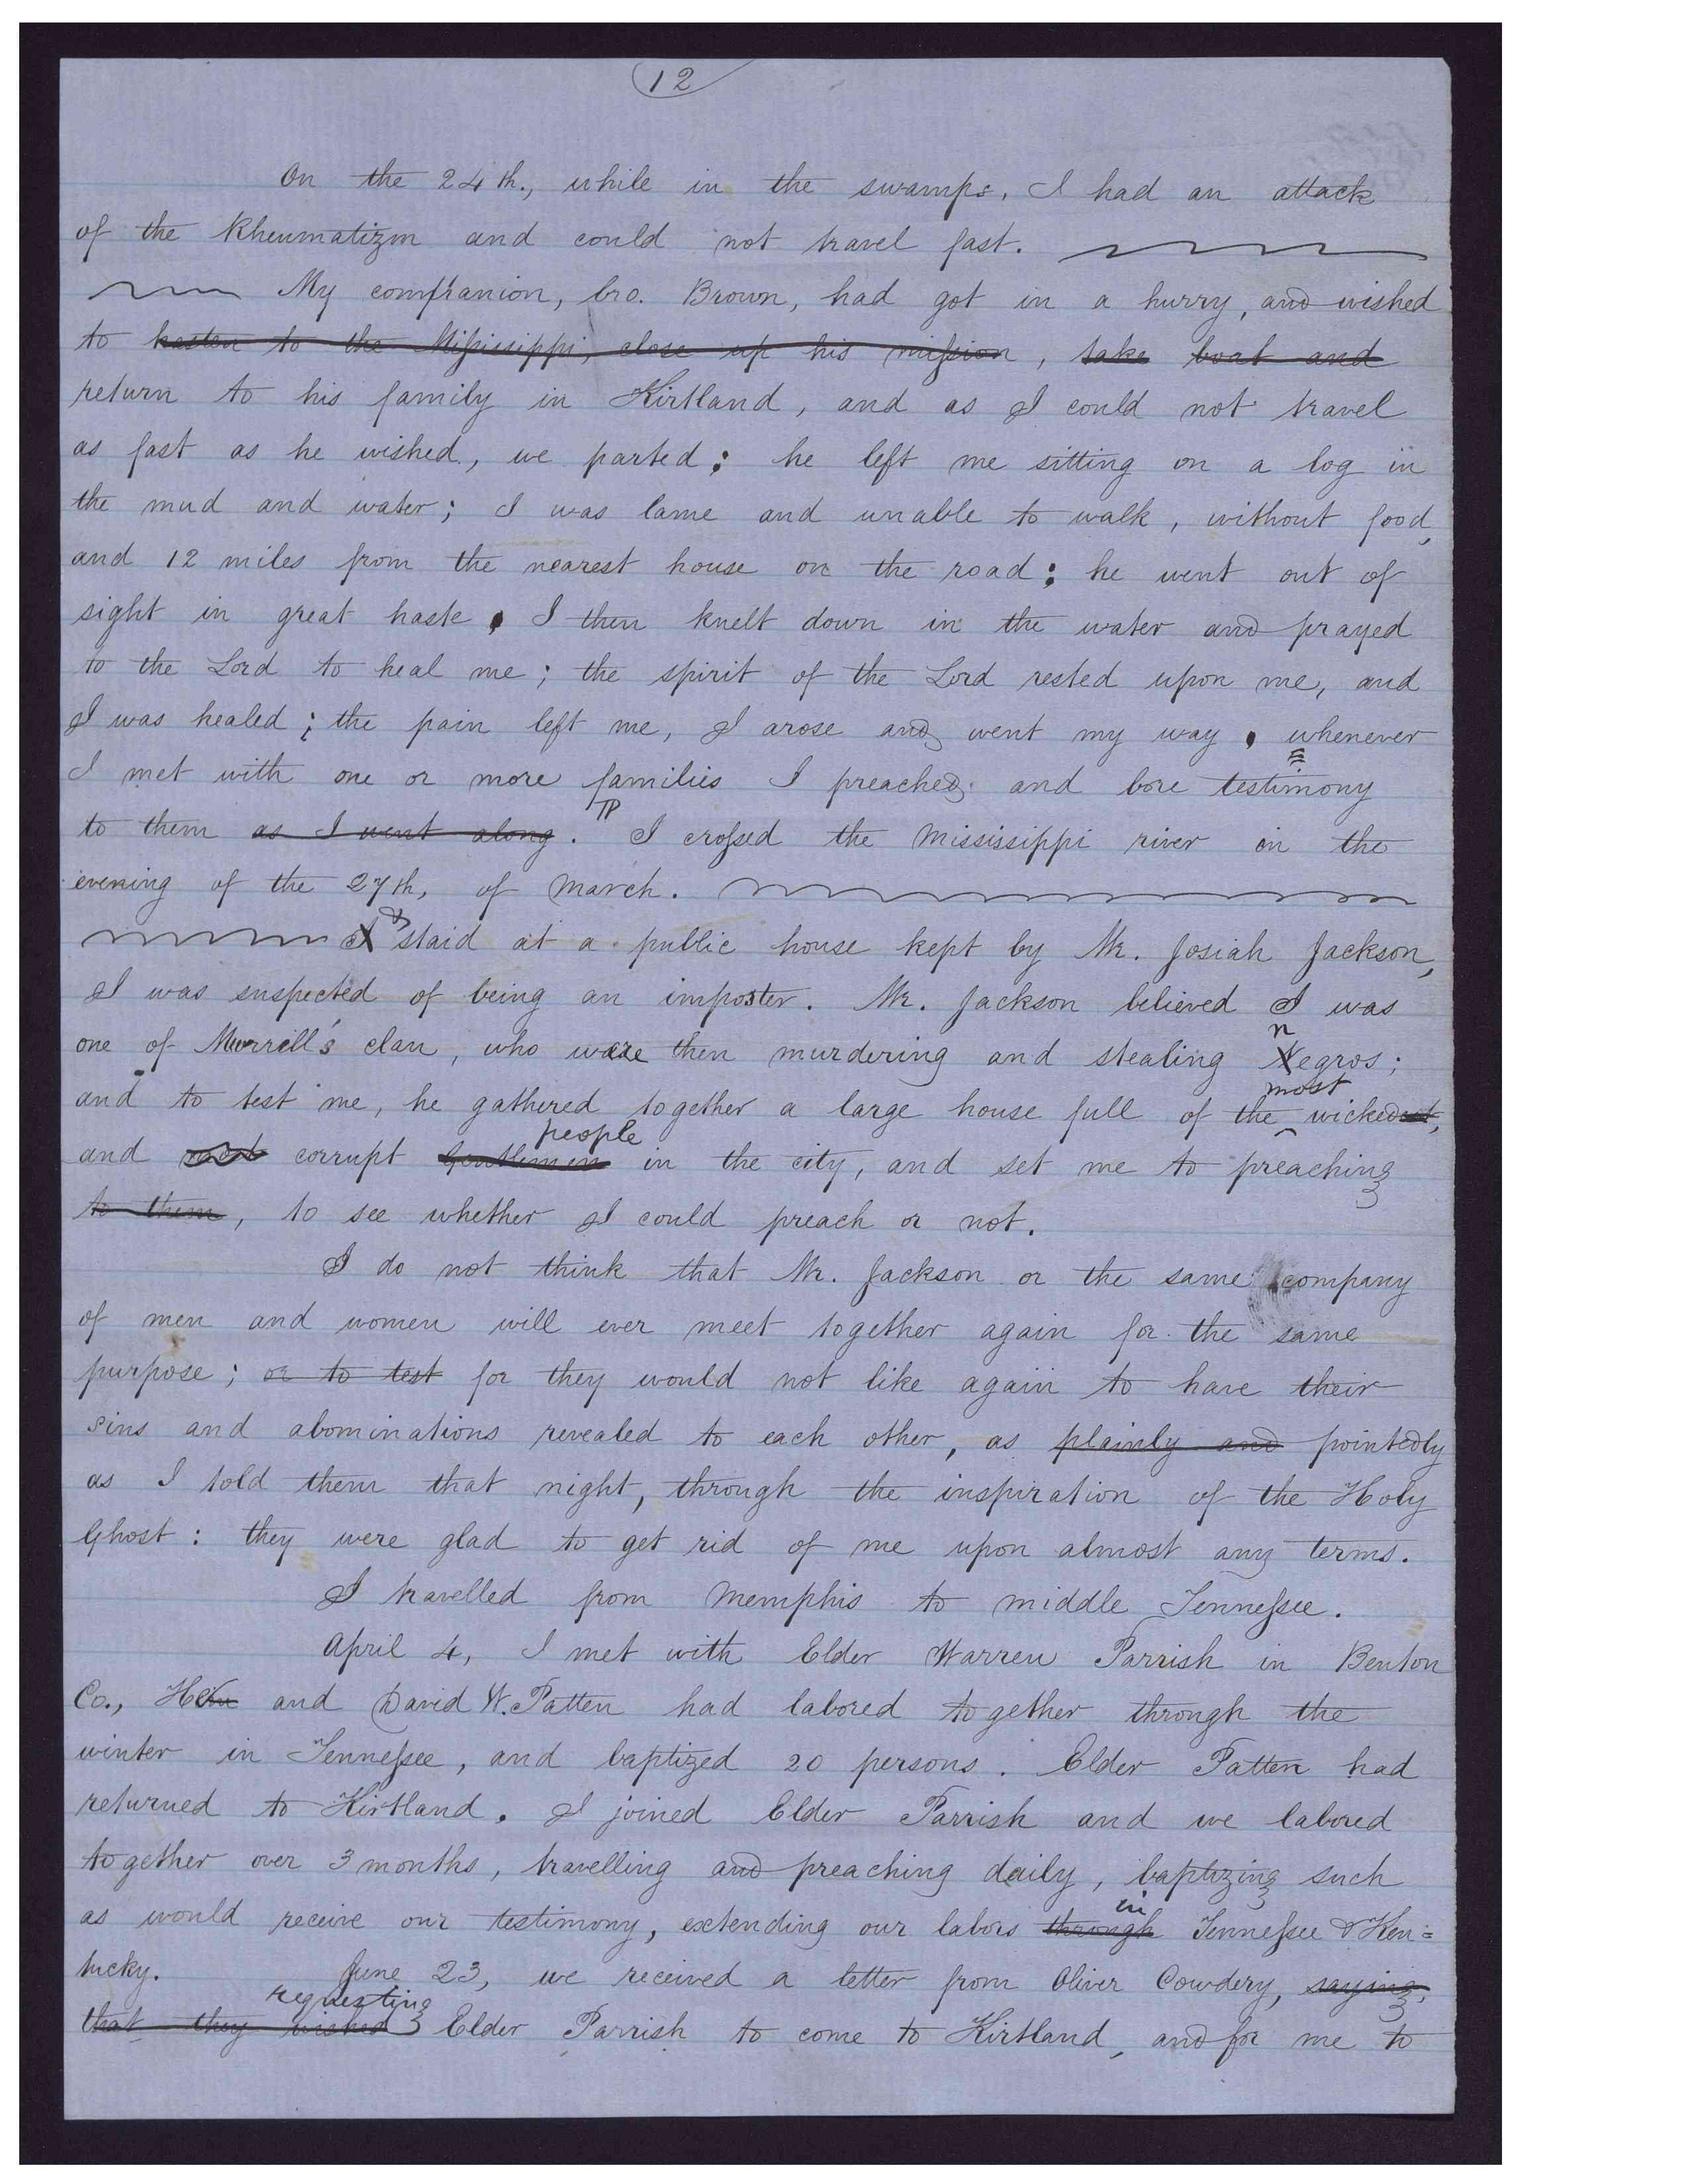 12
On the 24th., while in the swamps, I had an attack
of the Rheumatizm and could not travel fast.
My companion, bro. Brown, had got in a hurry, and wished
to hasten to the Missisippi, close up his mission, take boat and
return to his family in Kirtland, and as I could not travel
as fast as he wished, we parted; he left me sitting on a log in
the mud and water; I was lame and unable to walk, without food,
and 12 miles from the nearest house on the road; he went out of
sight in great haste. I then knelt down in the water and prayed
to the Lord to heal me; the spirit of the Lord rested upon me, and
I was healed; the pain left me, I arose and went my way. whenever
I met with one or more families I preached and bore testimony
to them as I went along. I crossed the Mississippi river on the
evening of the 27th, of March.
I & staid at a public house kept by Mr. Josiah Jackson,
I was suspected of being an imposter. Mr. Jackson believed I was
n
one of Murrell's clan, who were then murdering and stealing Negros;
most
and to test me, he gathered together a large house full of the wickedest,
people
and most corrupt Gentlemen in the city, and set me to preaching
to them, to see whether I could preach or not.
I do not think that Mr. Jackson or the same company
of men and women will ever meet together again for the same
purpose; or to test for they would not like again to have their
sins and abominations revealed to each other, as plainly and pointedly
as I told them that night, through the inspiration of the Holy
Ghost: they were glad to get rid of me upon almost any terms.
I travelled from Memphis to middle Tennessee.
April 4, I met with Elder Warren Parrish in Benton
Co., He and David W. Patten had labored together through the
winter in Tennessee, and baptized 20 persons. Elder Patten had
returned to Kirtland. I joined Elder Parrish and we labored
together over 3 months, travelling and preaching daily, baptizing such
in
as would receive our testimony, extending our labors through Tennessee & Ken=
tucky. June 23, we received a letter from Oliver Cowdery, saying,
requesting
that they wished Elder Parrish to come to Kirtland, and for me to